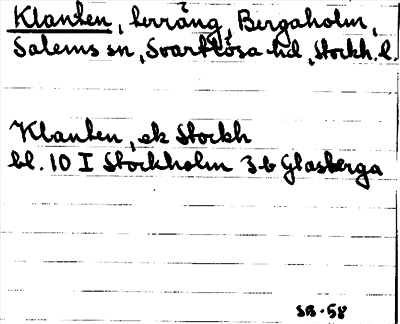 Klanten, terräng, Bergaholm,
Salems sn, Svartlösa hd, Stockh. l.
Klanten, ek Stockh
bl. 10 I Stockholm 3 b Glasberga
SB-58